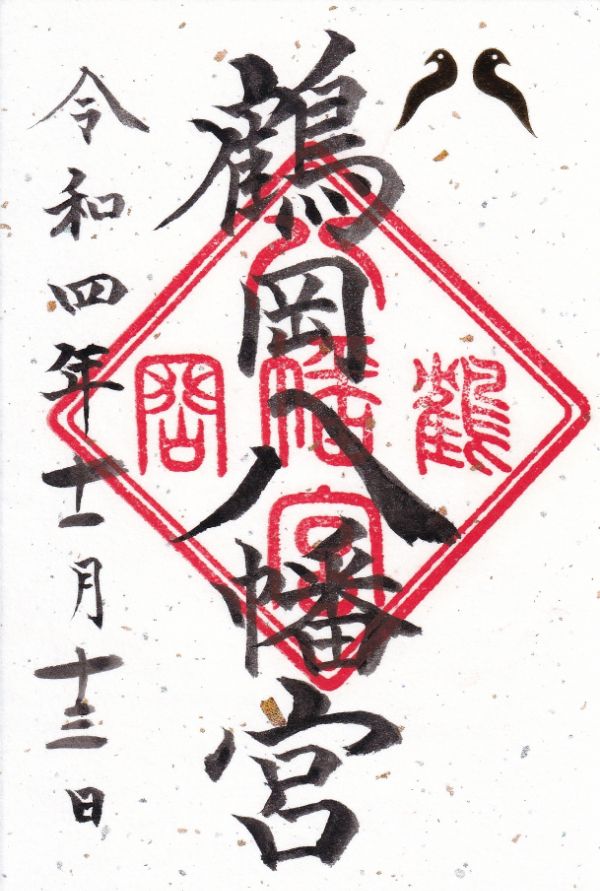 鶴岡八幡宮
令和四年十一月十三日
鶴
八幡宮
岡